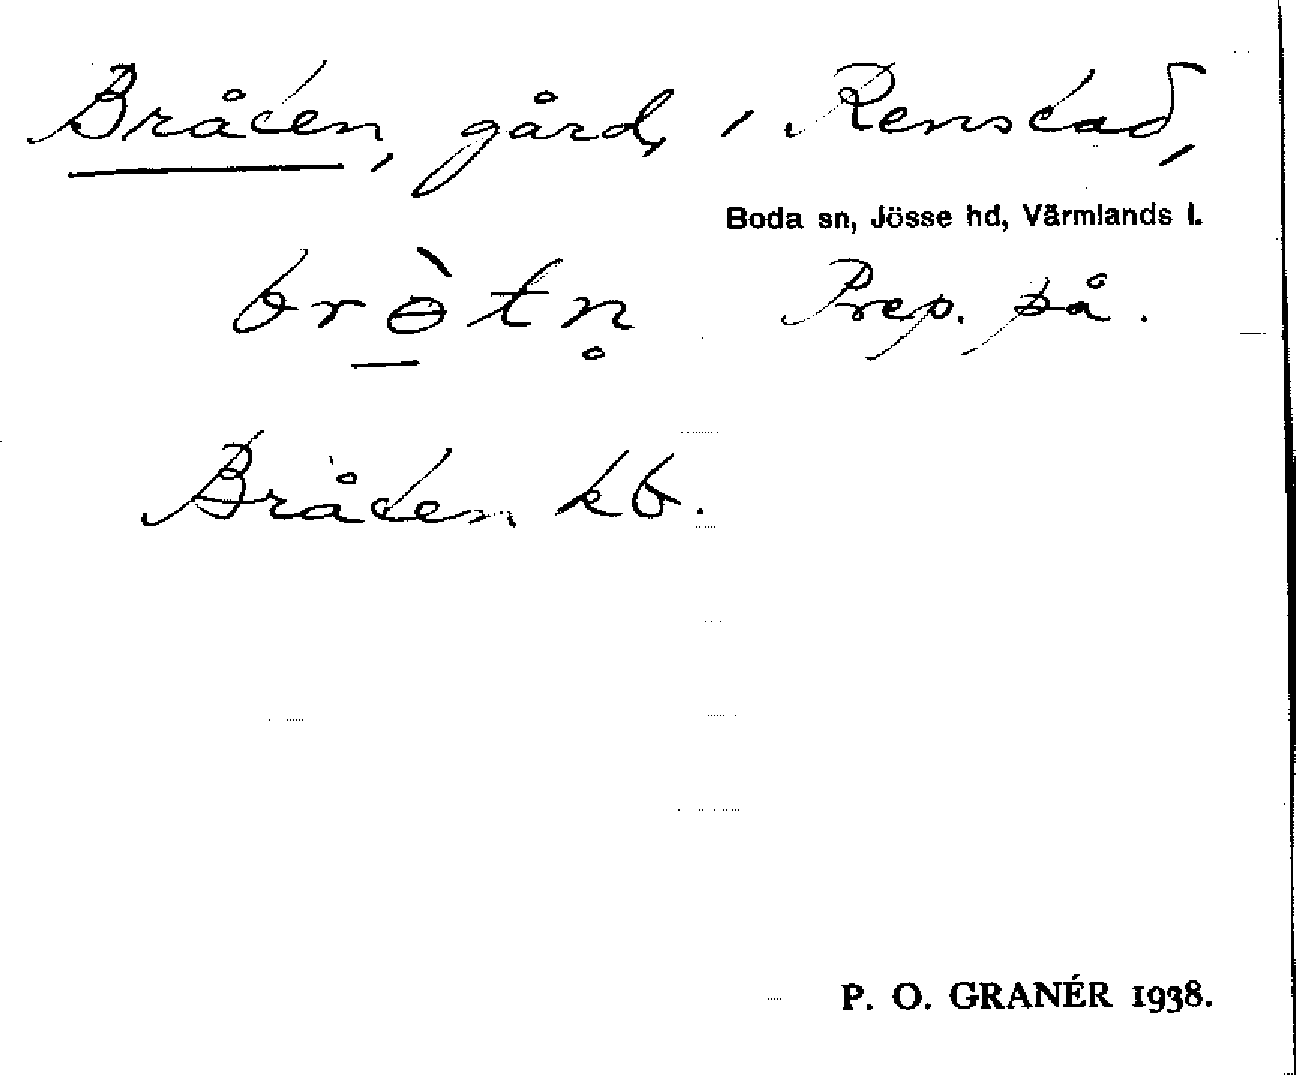 Bråten, gård, i Renstad,
Boda sn, Jösse hd, Värmlands l.
brɵ̀tn̥ Prep. på.
Bråten kb.
P. O. GRANÉR 1938.